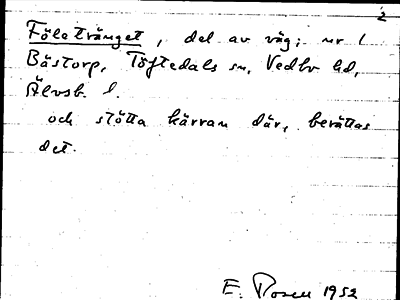 2
Föletrånget, del av väg; nr 1
Båstorp, Töftedals sn, Vedbo hd,
Älvsb. l.
och stötta kärran där, berättas
det.
E. Rosell 1952